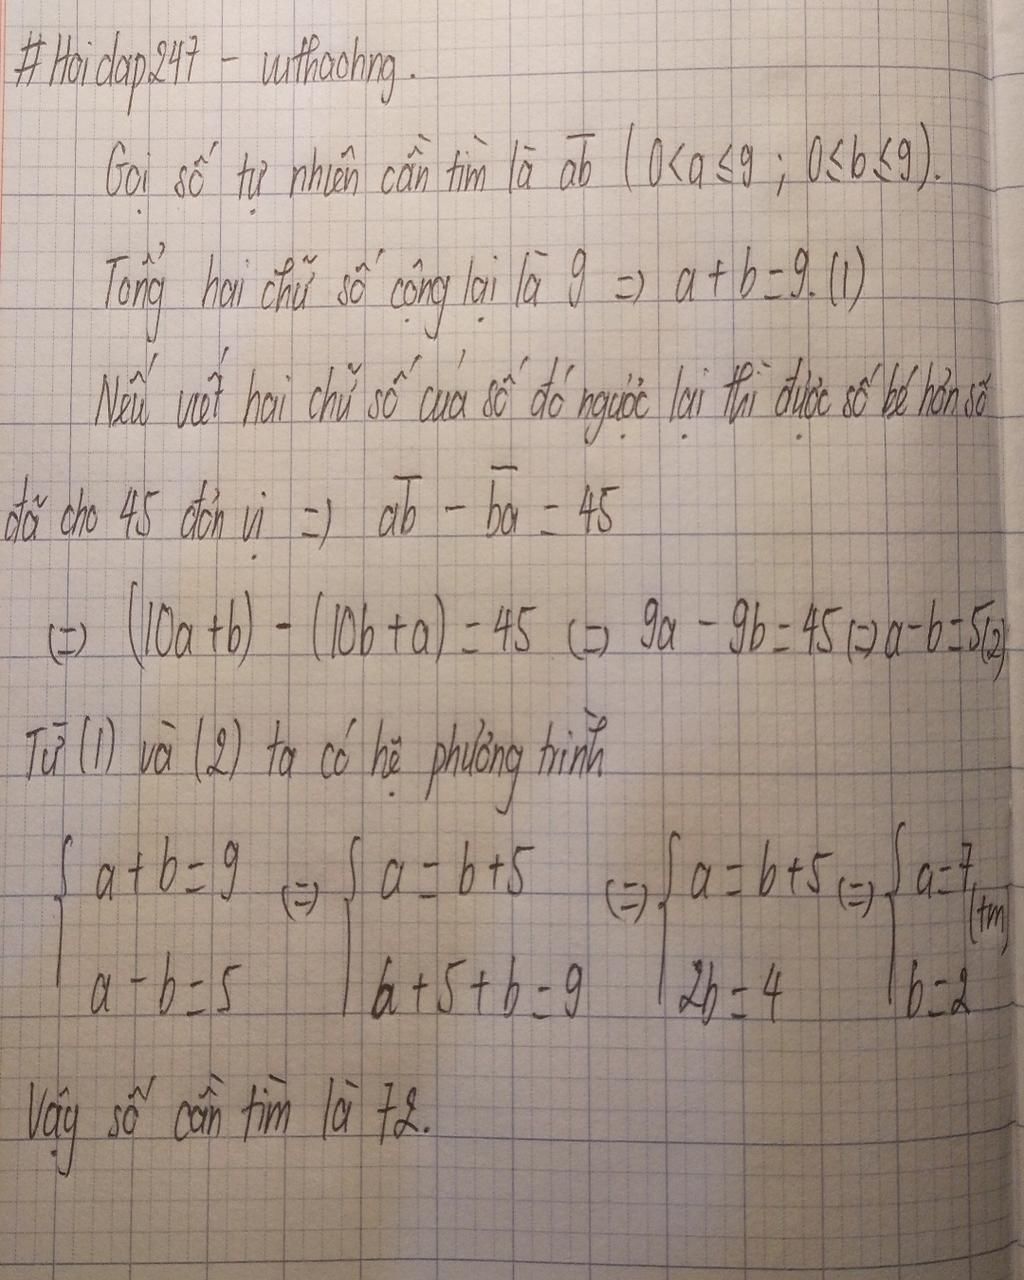 #Hoidap247 - vuthaohng.
Gọi số tự nhiên cần tìm là a̅b̅ (0<a≤9 ; 0≤b≤9).
Tổng hai chữ số cộng lại là 9 => a + b = 9. (1)
Nếu viết hai chữ số của số đó ngược lại thì được số bé hơn số
đã cho 45 đơn vị => a̅b̅ - b̅a̅ = 45
(=) (10a + b) - (10b + a) = 45 (=) 9a - 9b = 45 (=) a - b = 5 (2)
Từ (1) và (2) ta có hệ phương trình
{ a + b = 9 (=) { a = b + 5 (=) { a = b + 5 (=) { a = 7 (tm)
a - b = 5 b + 5 + b = 9 2b = 4 b = 2
Vậy số cần tìm là 72.